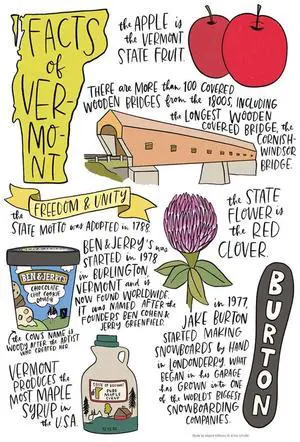 FACTS
of
VER-
MO-
NT
the APPLE is
the VERMONT
STATE FRUIT.
THERE ARE MORE THAN 100 COVERED
WOODEN BRIDGES from the 1800s, INCLUDING
the LONGEST WOODEN
COVERED BRIDGE, the
CORNISH-
WINDSOR
BRIDGE.
FREEDOM & UNITY
the
STATE MOTTO was ADOPTED in 1788.
the STATE
FLOWER is
the RED
CLOVER.
BEN & JERRY'S
CHOCOLATE
CHIP COOKIE
DOUGH
BEN & JERRY'S was
STARTED in 1978
in BURLINGTON,
VERMONT and is
NOW FOUND WORLDWIDE.
IT WAS NAMED AFTER the
FOUNDERS BEN COHEN &
JERRY GREENFIELD.
(the COW'S NAME is
WOODY AFTER the ARTIST
WHO CREATED HER.
VERMONT
PRODUCES the
MOST MAPLE
SYRUP in
the U.S.A.
PURE MAPLE
SYRUP
in 1977,
JAKE BURTON
STARTED MAKING
SNOWBOARDS by HAND
in LONDONDERRY. WHAT
BEGAN in HIS GARAGE
HAS GROWN INTO ONE
of the WORLD'S BIGGEST
SNOWBOARDING
COMPANIES.
BURTON